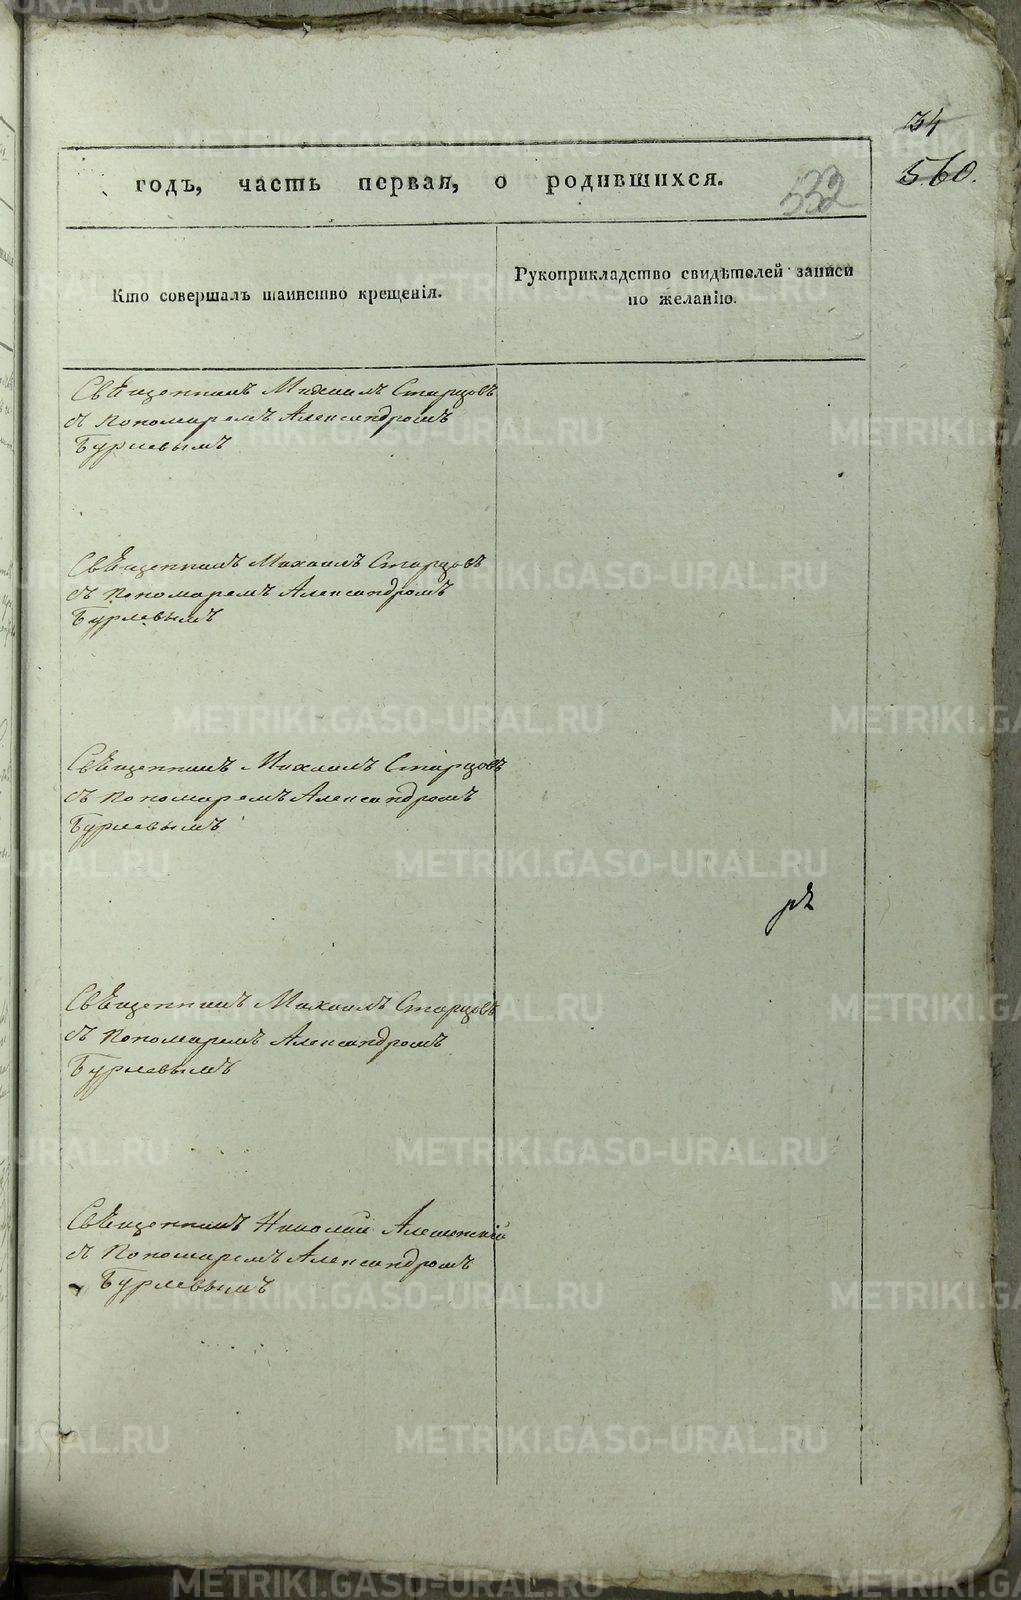 34
560.
532
годъ, часть первая, о родившихся.
Кто совершалъ таинство крещенія.
Рукоприкладство свидѣтелей записи
по желанію.
Священникъ Михаилъ Старцовъ
съ пономаремъ Александромъ
Бурлевымъ
Священникъ Михаилъ Старцовъ
съ пономаремъ Александромъ
Бурлевымъ
Священникъ Михаилъ Старцовъ
съ пономаремъ Александромъ
Бурлевымъ
рѣ
Священникъ Михаилъ Старцовъ
съ пономаремъ Александромъ
Бурлевымъ
Священникъ Николай
съ пономаремъ Александромъ
Бурлевымъ
METRIKI.GASO-URAL.RU